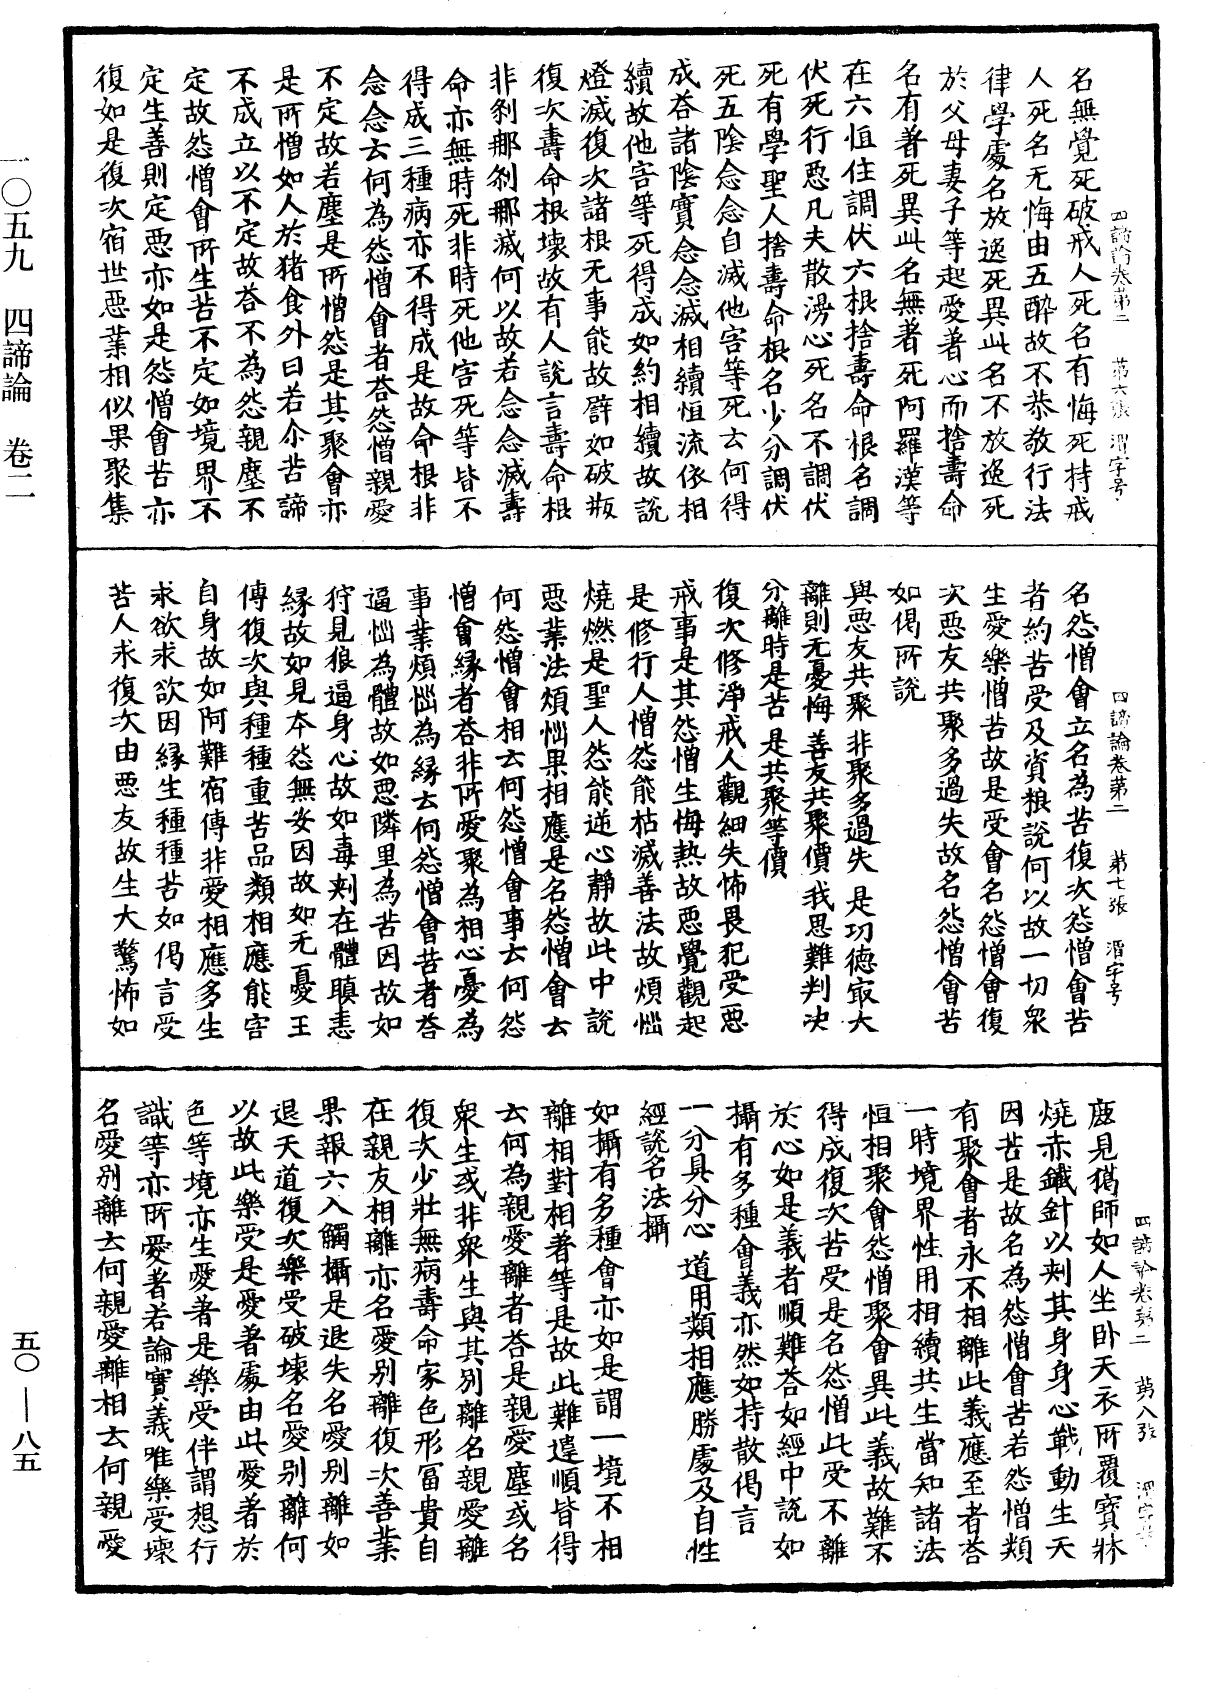 一〇五九 四諦論 卷二
名無覺死破戒人死名有悔死持戒
人死名无悔由五醉故不恭敬行法
律學處名放逸死異此名不放逸死
於父母妻子等起愛著心而捨壽命
名有著死異此名無著死阿羅漢等
在六恒住調伏六根捨壽命根名調
伏死行惡凡夫散漫心死名不調伏
死有學聖人捨壽命根名少分調伏
死五陰念念自滅他害等死云何得
成荅諸陰實念念滅相續恒流依相
續故他害等死得成如約相續故說
燈滅復次諸根无事能故辟如破瓶
復次壽命根壞故有人說言壽命根
非刹那刹那滅何以故若念念滅壽
命亦無時死非時死他害死等皆不
得成三種病亦不得成是故命根非
念念去何為怨憎會者荅怨憎親愛
不定故若塵是所憎怨是其聚會亦
是所憎如人於猪食外曰若尒苦諦
不成立以不定故荅不為怨親塵不
定故怨憎會所生苦不定如境界不
定生善則定惡亦如是怨憎會苦亦
復如是復次宿世惡業相似果聚集
四諦論卷第二 第七張 渭字号
名怨憎會立名為苦復次怨憎會苦
者約苦受及資粮說何以故一切衆
生愛樂憎苦故是受會名怨憎會復
次惡友共聚多過失故名怨憎會苦
如偈所說
與惡友共聚 非聚多過失 是功德冣大
離則无憂悔 善友共聚價 我思難判决
分離時是苦 是共聚等價
復次修淨戒人觀細失怖畏犯受惡
戒事是其怨憎生悔熱故惡覺觀起
是修行人憎怨能枯滅善法故煩惱
燒燃是聖人怨能逆心靜故此中說
惡業法煩惱果相應是名怨憎會去
何怨憎會相去何怨憎會事去何怨
憎會緣者荅非所愛聚為相心憂為
事業煩惱為緣去何怨憎會苦者荅
逼惱為體故如惡隣里為苦因故如
狩見狼逼身心故如毒刺在體瞋恚
緣故如見本怨無安因故如无憂王
傳復次與種種重苦品類相應能害
自身故如阿難宿傳非愛相應多生
求欲求欲因緣生種種苦如偈言受
苦人求復次由惡友故生大驚怖如
四諦論卷第二 第八張
鹿見獦師如人坐卧天衣所覆寶牀
燒赤鐵針以刺其身身心戰動生天
因苦是故名為怨憎會苦若怨憎類
有聚會者永不相離此義應至者荅
一時境界性用相續共生當知諸法
恒相聚會怨憎聚會異此義故難不
得成復次苦受是名怨憎此受不離
於心如是義者順難荅如經中說如
攝有多種會義亦然如持散偈言
一分具分心 道用類相應 勝處及自性
經說名法攝
如攝有多種會亦如是謂一境不相
離相對相著等是故此難違順皆得
去何為親愛離者荅是親愛塵或名
衆生或非衆生與其別離名親愛離
復次少壯無病壽命家色形冨貴自
在親友相離亦名愛別離復次善業
果報六入觸攝是退失名愛別離如
退天道復次樂受破壞名愛別離何
以故此樂受是愛著處由此愛著於
色等境亦生愛著是樂受伴謂想行
識等亦所愛著若論實義唯樂受壞
名愛別離去何親愛離相去何親愛
五〇—八五